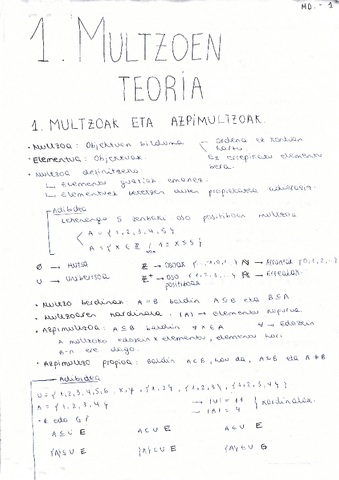 MD. - 1
1. MULTZOEN
TEORIA
1. MULTZOAK ETA AZPIMULTZOAK.
• Multzoa: Objektuen bilduma ordena ez kontuan hartu
Ez errepikatu elementu bera.
• Elementua: Objektuak.
• Multzoa definitzeko
Elementu guztiak emanez.
Elementuek betetzen duten propietatea adieraziz.
Adibidea
Lehenengo 5 zenbaki oso positiboen multzoa
A = {1,2,3,4,5}
A = {x ∈ Z / 1≤x≤5}
∅ → Hutsa Z → Osoak {...,0,1,...}
U → Unibertsoa Z⁺ → Oso positiboak {1,2,3,...}
• Multzo berdinak: A = B baldin A⊆B eta B⊆A
• Multzoaren kardinala: |A| → elementu kopurua.
• Azpimultzoa: A⊆B baldin ∀x∈A ∀ → Edozein
A multzoko edozein x elementu, elementu hori
B-n ere dago.
• Azpimultzo propioa: baldin A⊂B, hau da, A⊆B eta A≠B
Adibidea
A = {1,2,3,4}
→ |U| = 11
→ |A| = 4 kardinalea.
• E edo G?
A⊆U E A⊂U E A∈U E
{A}⊆U E {A}⊂U E {A}∈U G